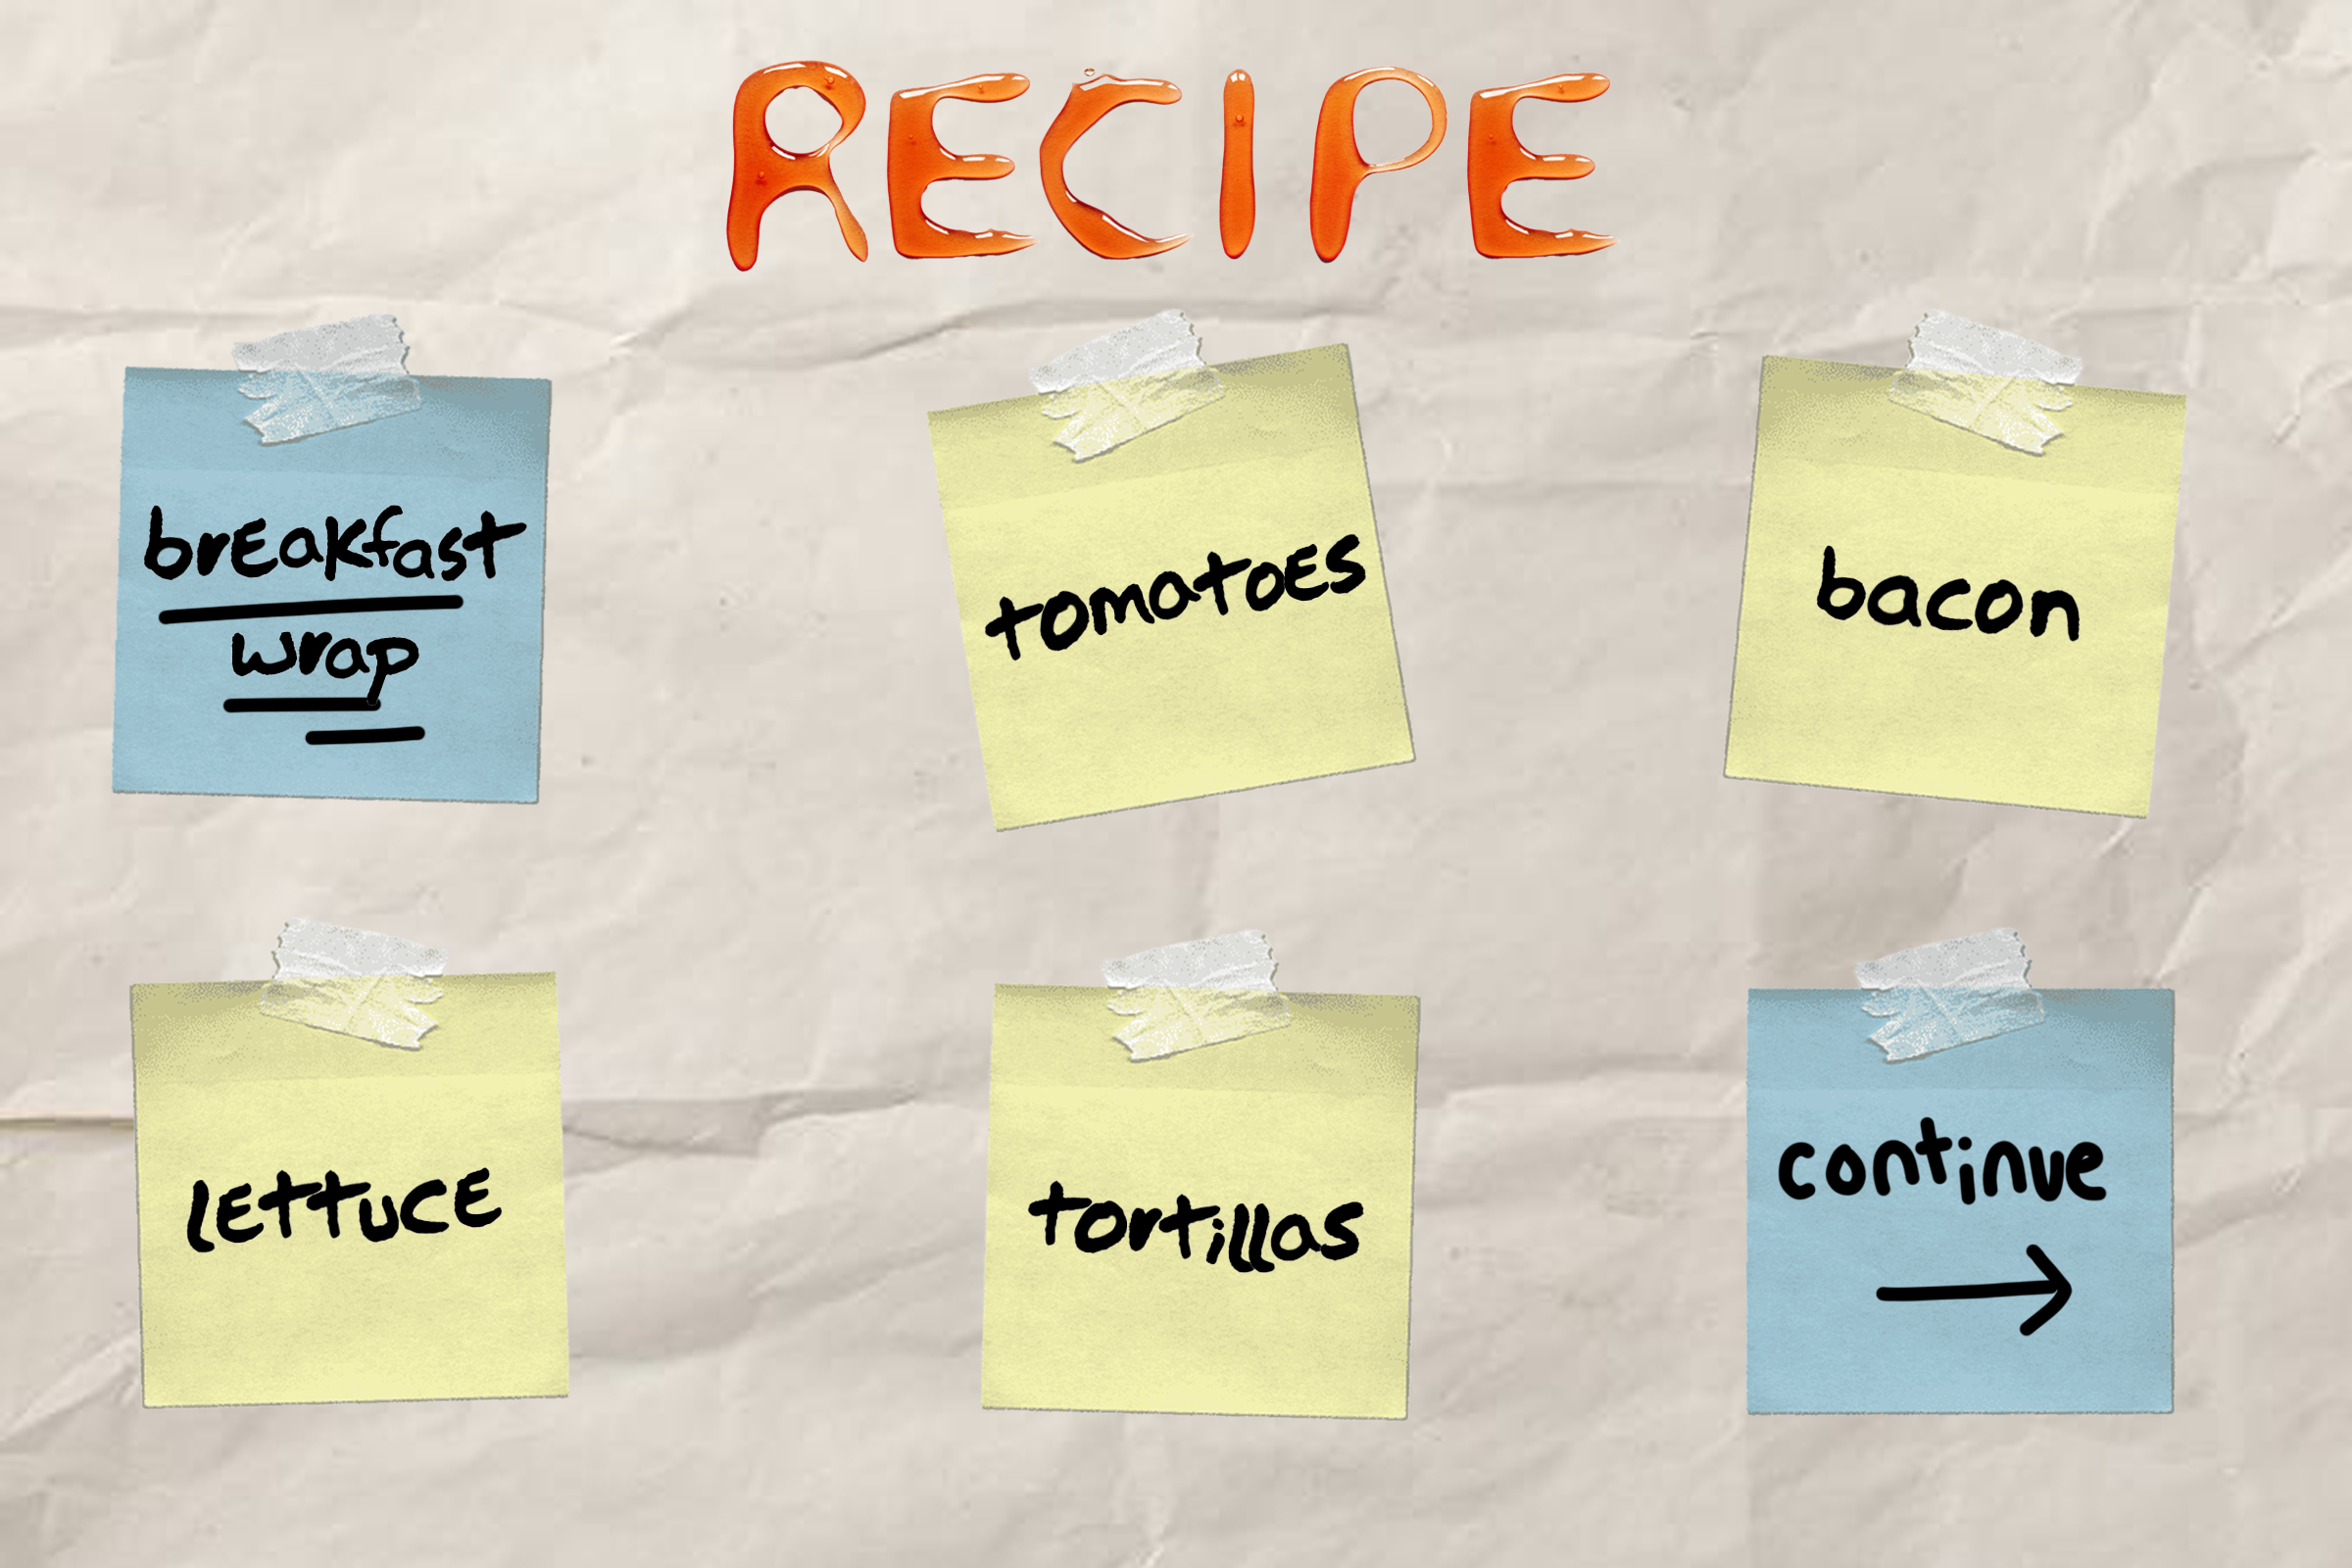 RECIPE
breakfast
wrap
tomatoes
bacon
lettuce
tortillas
continue